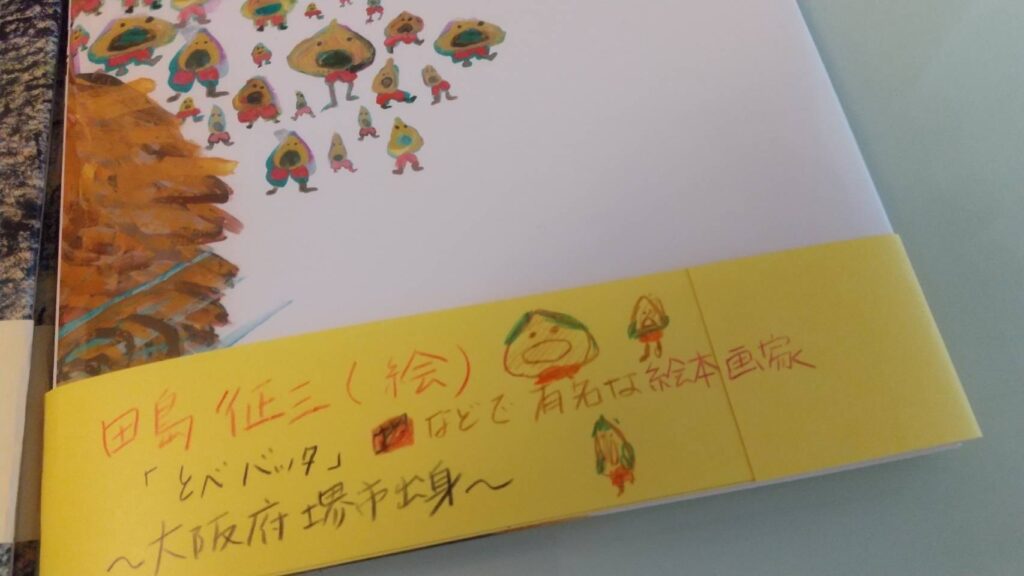 田島征三(絵)
「とべバッタ」などで有名な絵本画家
~大阪府堺市出身~